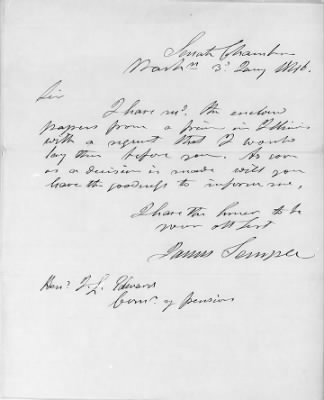 Senate Chamber
Washn 3d Jany 1846.
Sir
I have recd. the enclosed
papers from a friend in Illinois
with a request that I would
lay them before you. As soon
as a decision is made will you
have the goodness to inform me,
I have the honor to be
your obt Svt
James Semple
Honl J. L. Edwards
Comr. of pensions